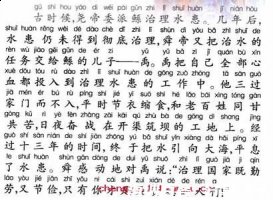 gǔ shí hou yáo dì wěi pài gǔn zhì lǐ shuǐ huàn jǐ nián hòu
古时候，尧帝委派鲧治理水患。几年后，
shuǐ huàn réng wèi dé dào chè dǐ zhì lǐ shùn dì yòu bǎ zhì shuǐ de
水患仍未得到彻底治理，舜帝又把治水的
rèn wu jiāo gěi gǔn de ér zi yǔ yǔ bǎ zì jǐ quán bù xīn
任务交给鲧的儿子——禹。禹把自己全部心
xuè dōu tóu rù dào zhì lǐ shuǐ huàn de gōng zuò zhōng tā sān guò
血都投入到治理水患的工作中。他三过
jiā mén ér bú rù píng shí jié yī suō shí hé lǎo bǎi xìng tóng gān
家门而不入，平时节衣缩食，和老百姓同甘
gòng kǔ rì yè fèn zhàn zài kāi qú zhù bà de gōng dì shang jīng
共苦，日夜奋战在开渠筑坝的工地上。经
guò shí sān nián de shí jiān zhōng yú bǎ shuǐ yǐn xiàng dà hǎi píng xī
过十三年的时间，终于把水引向大海，平息
le shuǐ huàn shùn gǎn dòng de duì yǔ shuō zhì lǐ guó jiā jì qín
了水患。舜感动地对禹说：“治理国家既勤
láo yòu jié jiǎn zhǐ yǒu nǐ
劳，又节俭，只有你